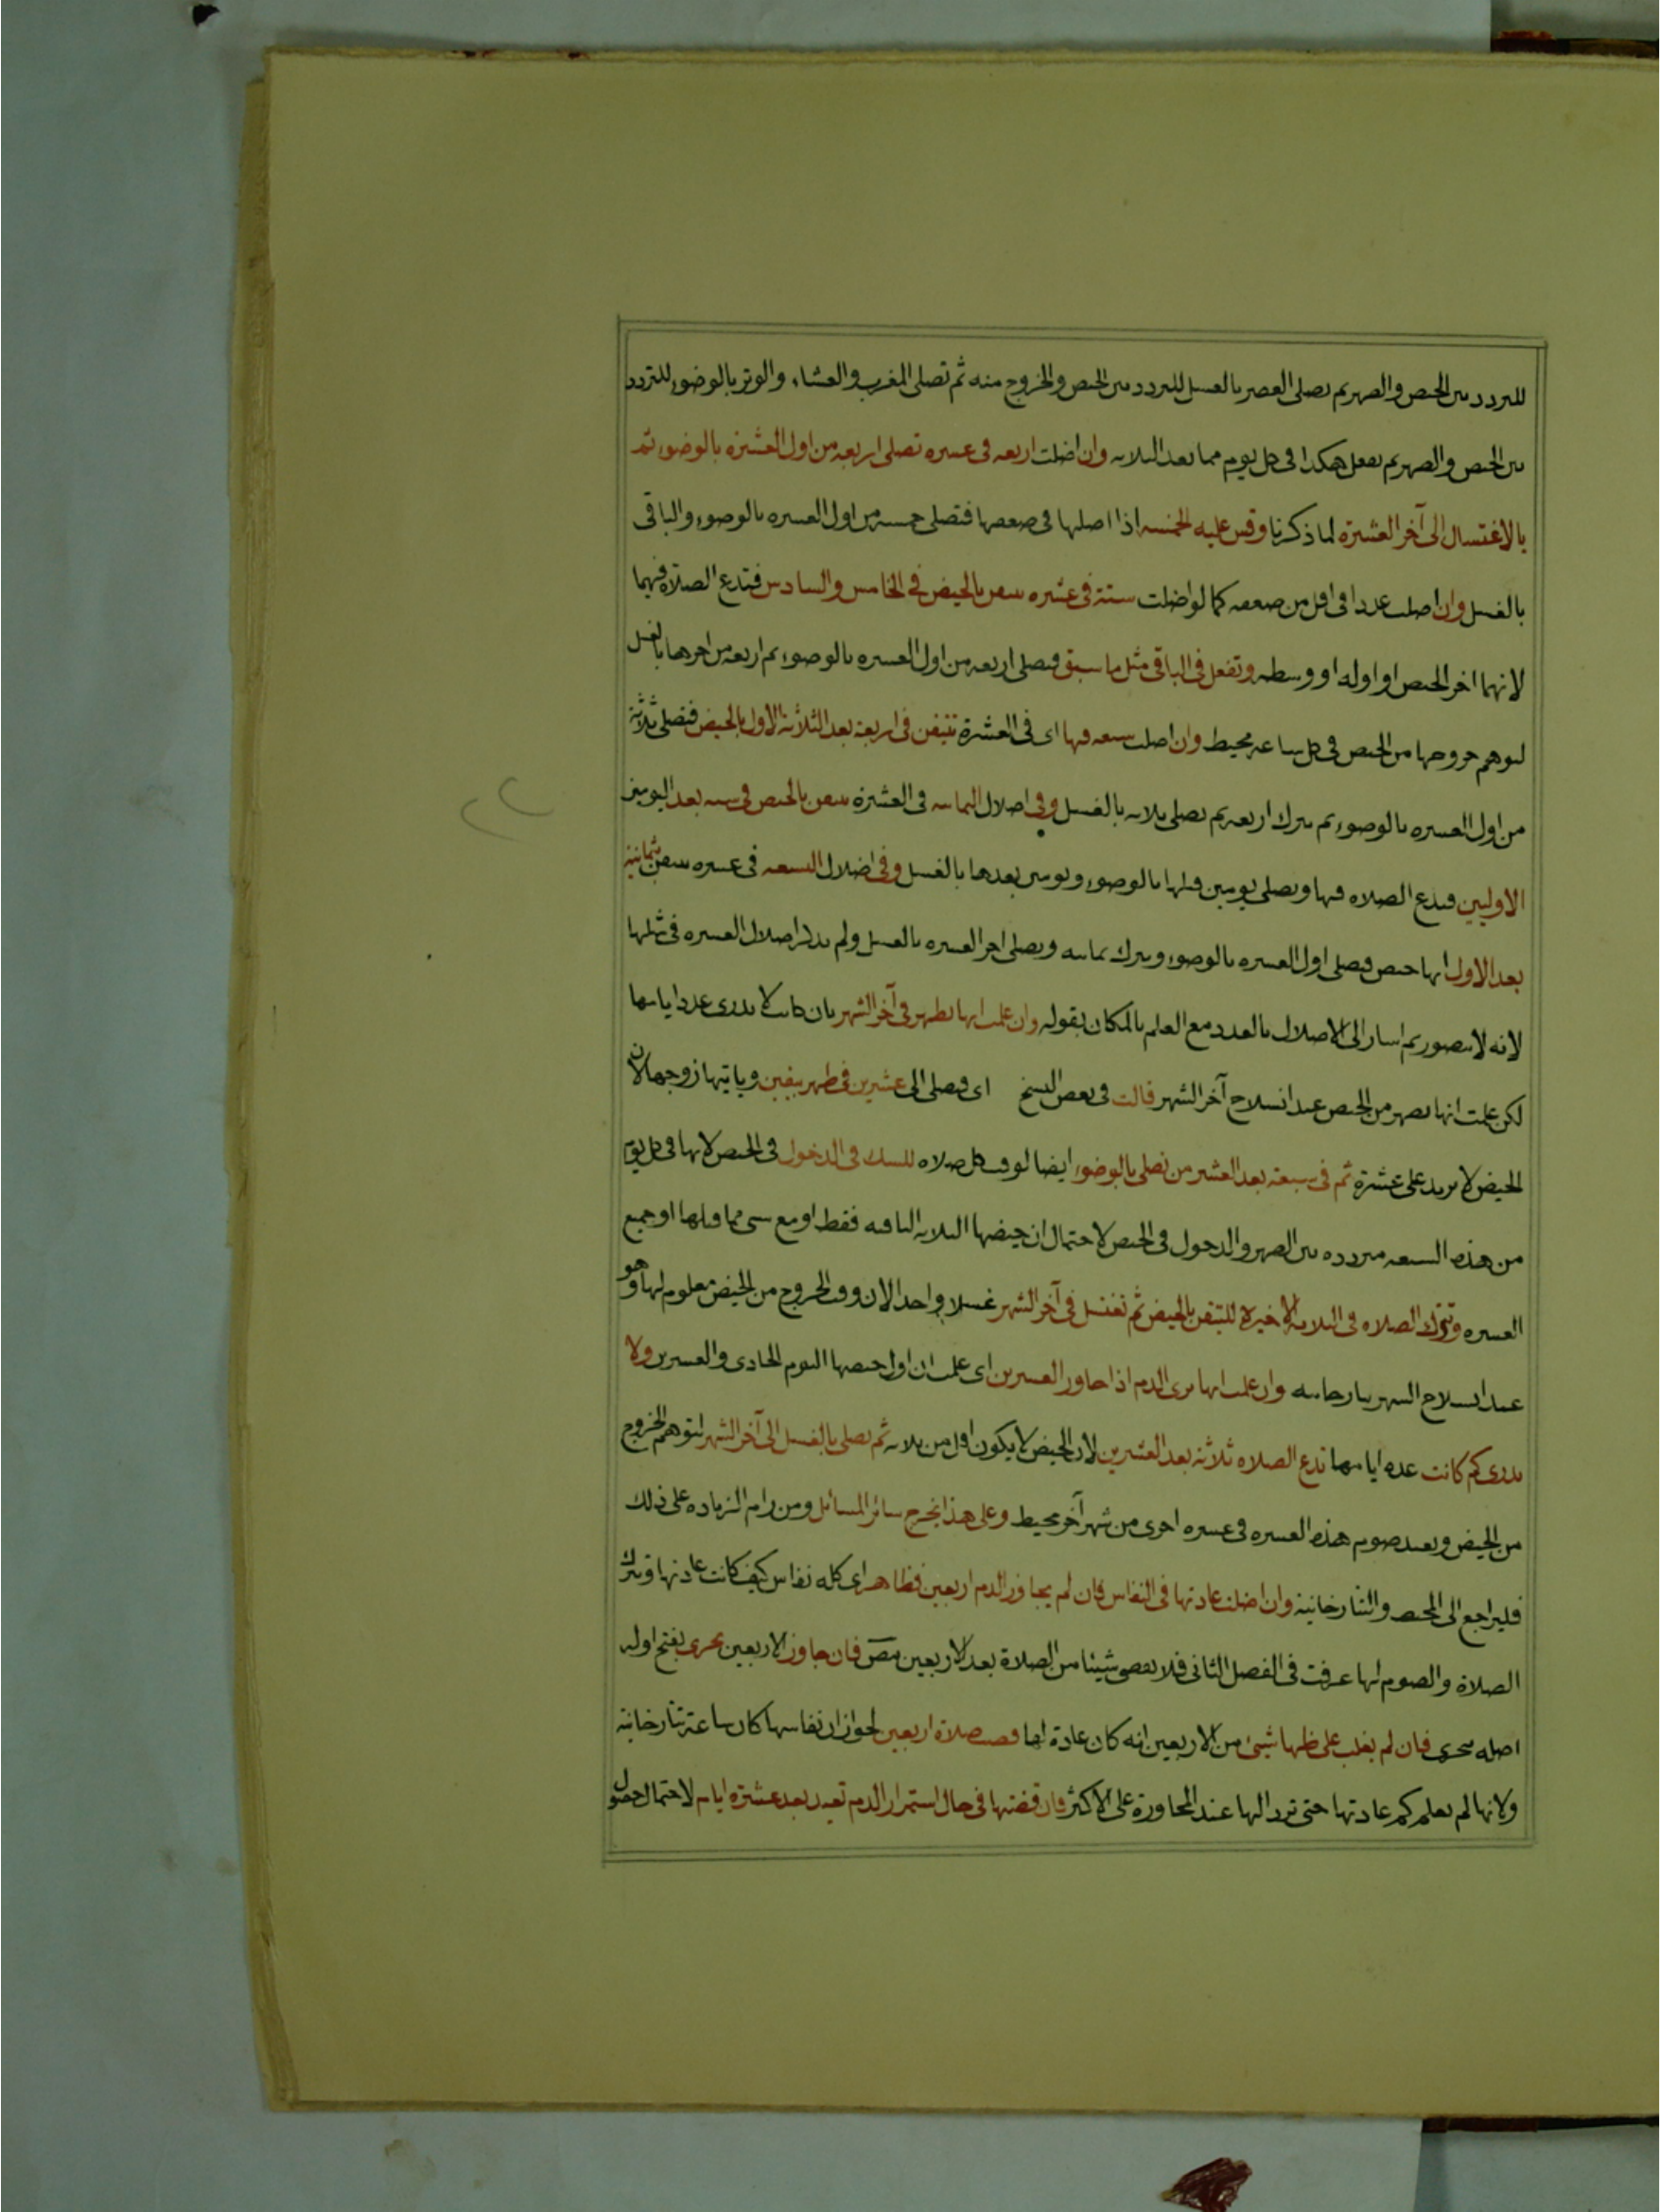 للتردد بين الحيض والطهر ثم تصلى العصر بالغسل للتردد بين الحيض والخروج منه ثم تصلى المغرب والعشاء والوتر بالوضوء للتردد
بين الحيض والطهر ثم تفعل هكذا فى كل يوم مما بعد الثلاثه وان اضلت اربعه فى عشره تصلى اربعة من اول العشرة بالوضوء ثم
بالاغتسال الى آخر العشرة لما ذكرنا وقس عليه الخمسه اذا اضلها فى ضعفها فتصلى خمسه من اول العشره بالوضوء والباقى
بالغسل وان اضلت عددا فى اقل من ضعفه كما لو اضلت ستة فى عشره تيقن بالحيض فى الخامس والسادس فتدع الصلاة فيهما
لانهما اخر الحيض او اوله او وسطه وتفعل فى الباقى مثل ما سبق فتصلى اربعه من اول العشره بالوضوء ثم اربعه من اخرها بالغسل
لتوهم خروجها من الحيض فى كل ساعه محيط وان اضلت سبعه فيها اى فى العشرة تتيقن فى اربعة بعد الثلاثة الاول بالحيض فتصلى ثلاثة
من اول العشره بالوضوء ثم تترك اربعه ثم تصلى ثلاثه بالغسل وفى اضلال الثمانيه فى العشرة تتيقن بالحيض فى سته بعد اليومين
الاوليين فتدع الصلاه فيها وتصلى يومين قبلها بالوضوء ويومين بعدها بالغسل وفى اضلال التسعه فى عشره تتيقن بثمانية
بعد الاول انها حيض فتصلى اول العشره بالوضوء وتترك ثمانيه وتصلى اخر العشره بالغسل ولم يذكر اضلال العشره فى مثلها
لانه لا يتصور ثم اشار الى الاضلال بالعدد مع العلم بالمكان بقوله وان علمت انها تطهر فى آخر الشهر بان كانت لا تدرى عدد ايامها
لكن علمت انها تطهر من الحيض عند انسلاخ آخر الشهر قالت فى بعض النسخ اى فتصلى الى عشرين فى طهر بيقين وياتيها زوجها لان
الحيض لا يزيد على عشرة ثم فى سبعة بعد العشرين تصلى بالوضوء ايضا لوقت كل صلاه للشك فى الدخول فى الحيض لانها فى كل يوم
من هذه السبعه متردده بين الطهر والدخول فى الحيض لاحتمال ان حيضها الثلاثه الباقيه فقط او مع شى مما قبلها او جميع
العشره وتترك الصلاه فى الثلاثة الاخيرة للتيقن بالحيض ثم تغتسل فى آخر الشهر غسلا واحدا لان وقت الخروج من الحيض معلوم لها وهو
عند انسلاخ الشهر تتارخانيه وان علمت انها ترى الدم اذا جاوز العشرين اى علمت ان اول حيضها اليوم الحادى والعشرين ولا
تدرى كم كانت عده ايامها تدع الصلاه ثلاثة بعد العشرين لان الحيض لا يكون اقل من ثلاثه ثم تصلى بالغسل الى آخر الشهر لتوهم الخروج
من الحيض وتعيد صوم هذه العشره فى عشره اخرى من شهر آخر محيط وعلى هذا يخرج سائر المسائل ومن رام الزياده على ذلك
فليراجع الى المحيط والتتارخانية وان اضلت عادتها فى النفاس فان لم يجاوز الدم اربعين فظاهر اى كله نفاس كيف كانت عادتها وتترك
الصلاة والصوم لما عرفت فى الفصل الثانى فلا تقضى شيئا من الصلاة بعد الاربعين مص فان جاوز الاربعين تحرى بفتح اوله
اصله تتحرى فان لم يغلب على ظنها شيئ من الاربعين انه كان عادة لها قضت صلاة اربعين لجواز ان نفاسها كان ساعة تتارخانية
ولانها لم تعلم كم عادتها حتى ترد الها عند المجاوزة على الاكثر فان قضتها فى حال استمرار الدم تعيد بعد عشرة ايام لاحتمال حصول